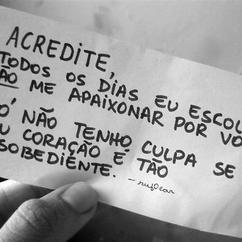 ACREDITE,
TODOS OS DIAS EU ESCOL
ÃO ME APAIXONAR POR VO
Ó NÃO TENHO CULPA SE
U CORAÇÃO É TÃO
SOBEDIENTE.